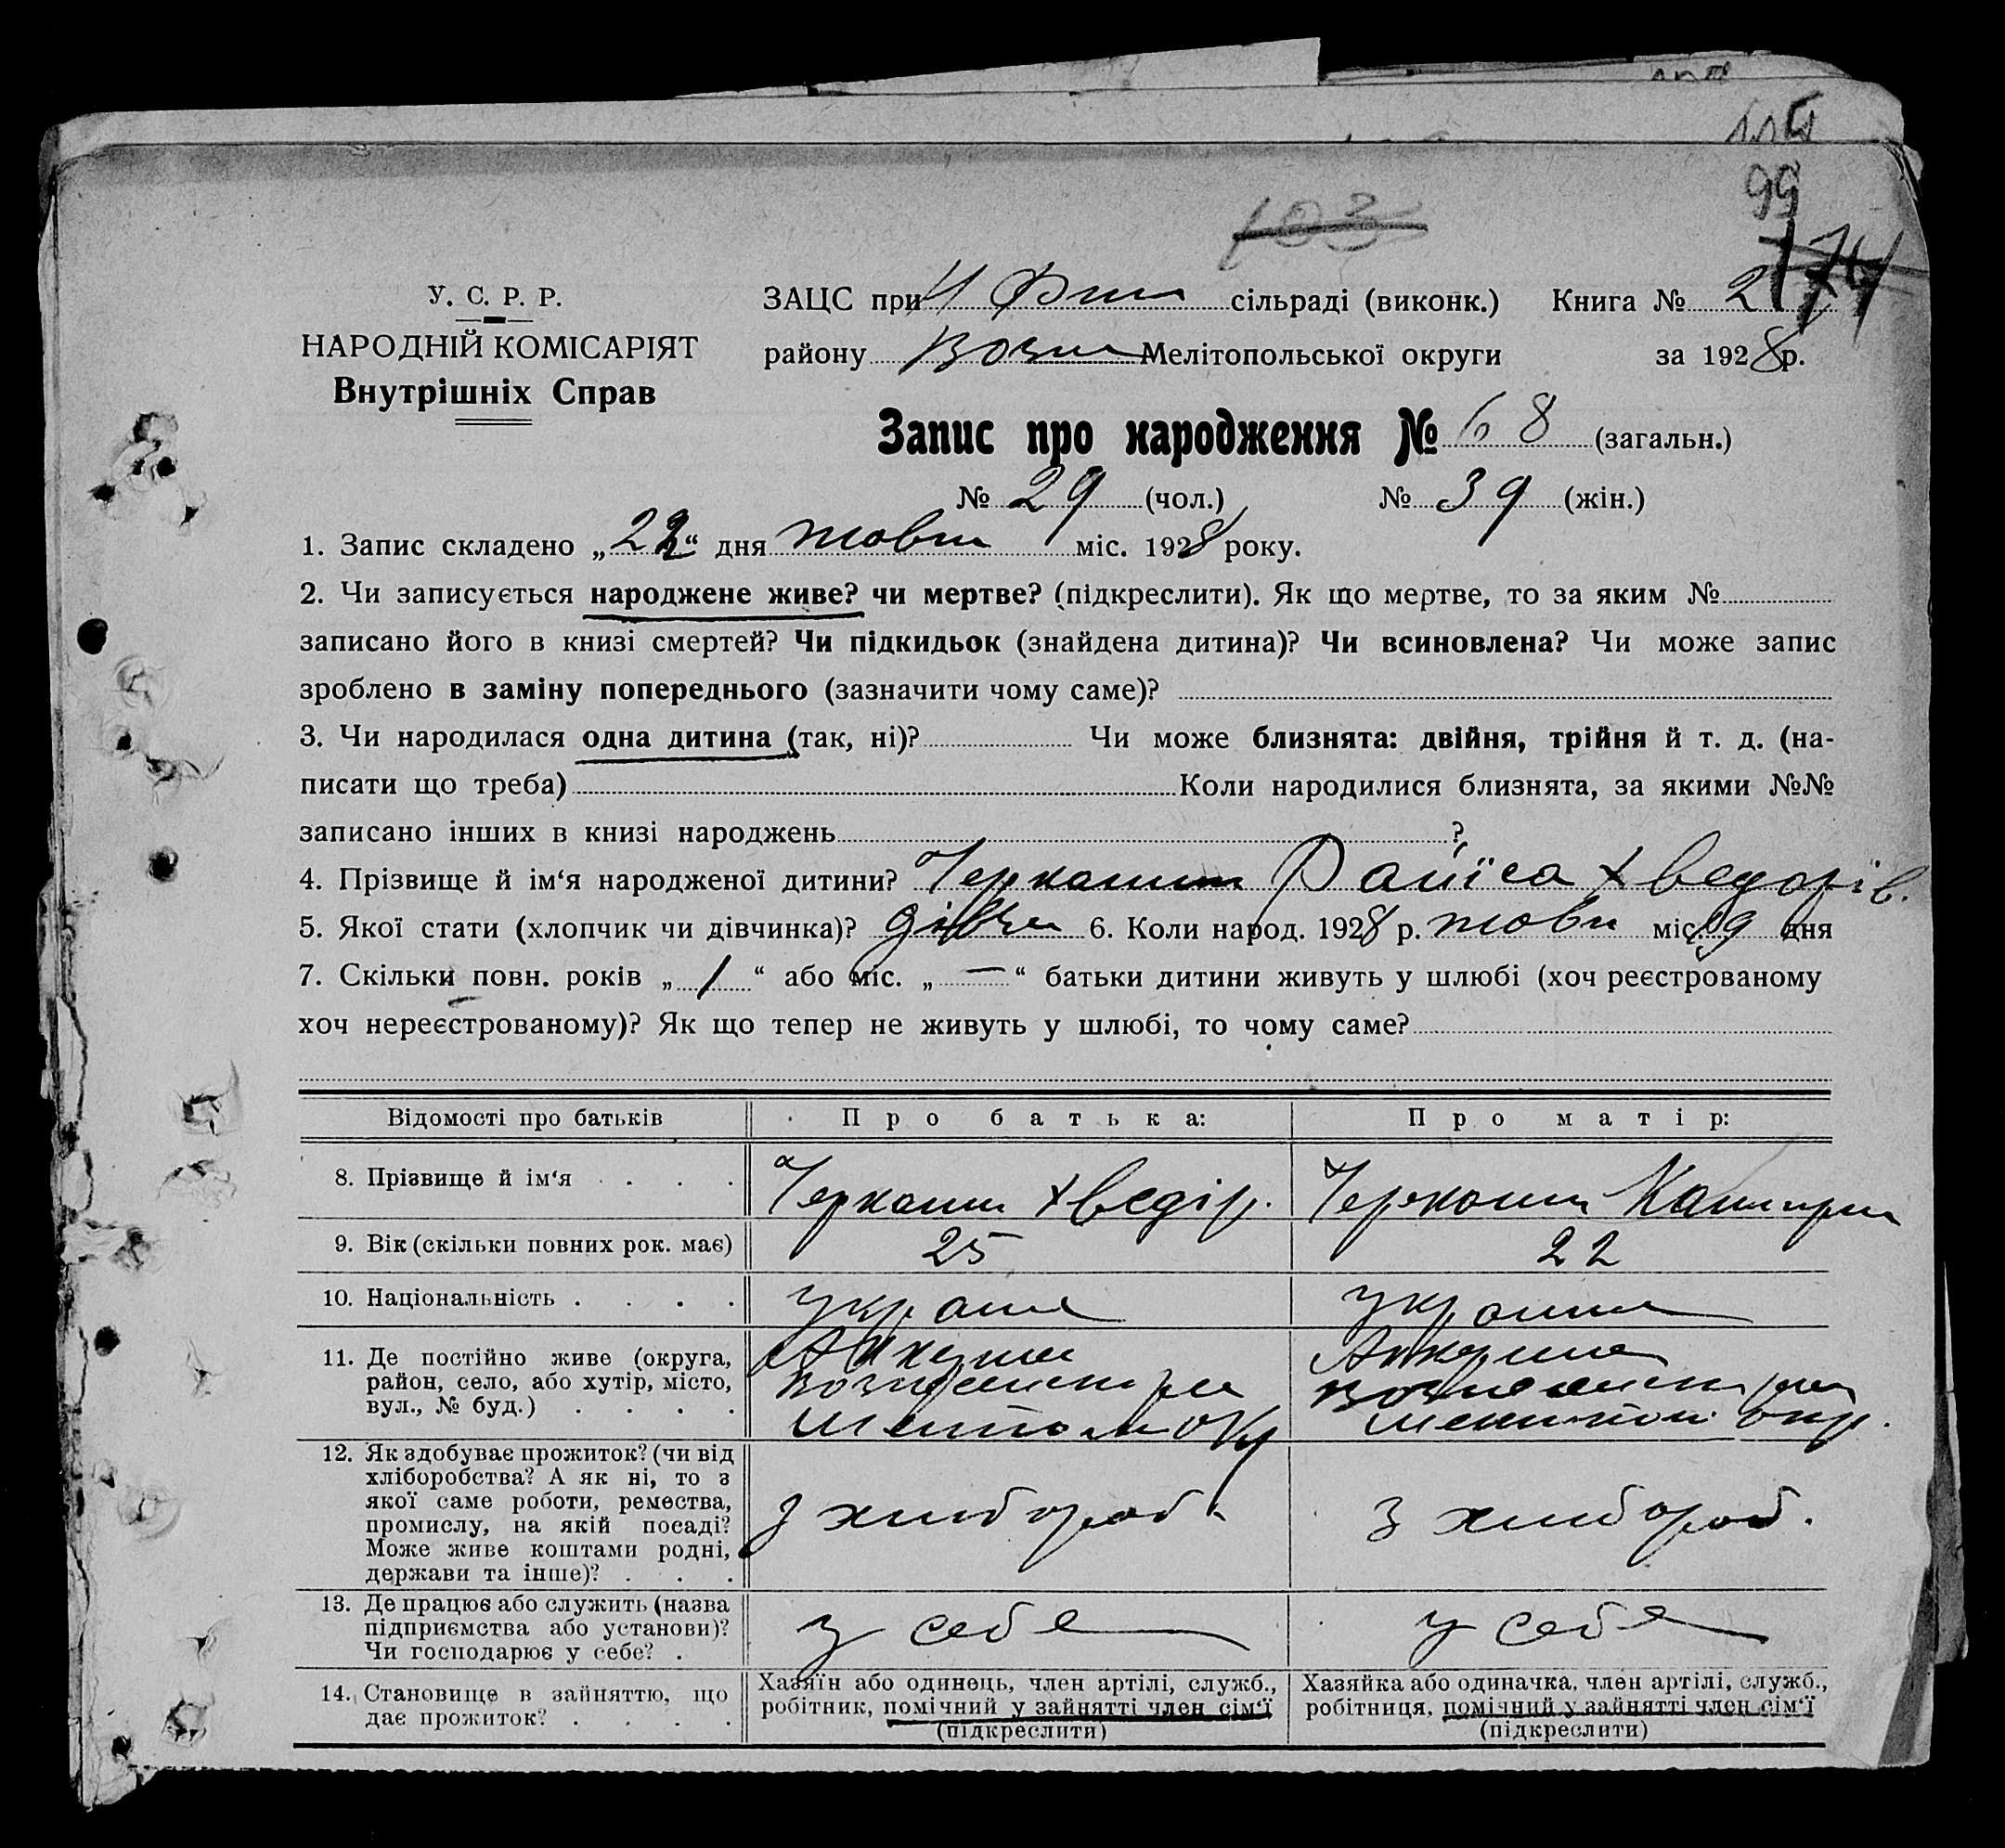 114
99
103
174
У. С. Р. Р.
НАРОДНІЙ КОМІСАРІЯТ
Внутрішніх Справ
ЗАЦС при сільраді (виконк.) Книга № 2
району Возн Мелітопольської округи за 1928 р.
Запис про народження № 68 (загальн.)
№ 29 (чол.) № 39 (жін.)
1. Запис складено „22“ дня жовтн міс. 1928 року.
2. Чи записується народжене живе? чи мертве? (підкреслити). Як що мертве, то за яким №
записано його в книзі смертей? Чи підкидьок (знайдена дитина)? Чи всиновлена? Чи може запис
зроблено в заміну попереднього (зазначити чому саме)?
3. Чи народилася одна дитина (так, ні)? Чи може близнята: двійня, трійня й т. д. (на-
писати що треба) Коли народилися близнята, за якими №№
записано інших в книзі народжень ?
4. Прізвище й ім‘я народженої дитини? Черкашин Раїса Хведорів.
5. Якої стати (хлопчик чи дівчинка)? дівч 6. Коли народ. 1928 р. жовтн міс. 19 дня
7. Скільки повн. років „ 1 “ або міс. „ — “ батьки дитини живуть у шлюбі (хоч реєстрованому
хоч нереєстрованому)? Як що тепер не живуть у шлюбі, то чому саме?
Відомості про батьків Про батька: Про матір:
8. Прізвище й ім‘я Черкашин Хведір. Черкашин
9. Вік (скільки повних рок. має) 25 22
10. Національність україн україн
11. Де постійно живе (округа,
район, село, або хутір, місто,
вул., № буд.)
12. Як здобуває прожиток? (чи від
хліборобства? А як ні, то з
якої саме роботи, ремества,
промислу, на якій посаді?
Може живе коштами родні,
держави та інше)?
з хлібороб. з хлібороб.
13. Де працює або служить (назва
підприємства або установи)?
Чи господарює у себе?
у себе у себе
14. Становище в зайняттю, що
дає прожиток?
Хазяїн або одинець, член артілі, служб.,
робітник, помічний у зайнятті член сім‘ї
(підкреслити)
Хазяйка або одиначка, член артілі, служб.,
робітниця, помічний у зайнятті член сім‘ї
(підкреслити)